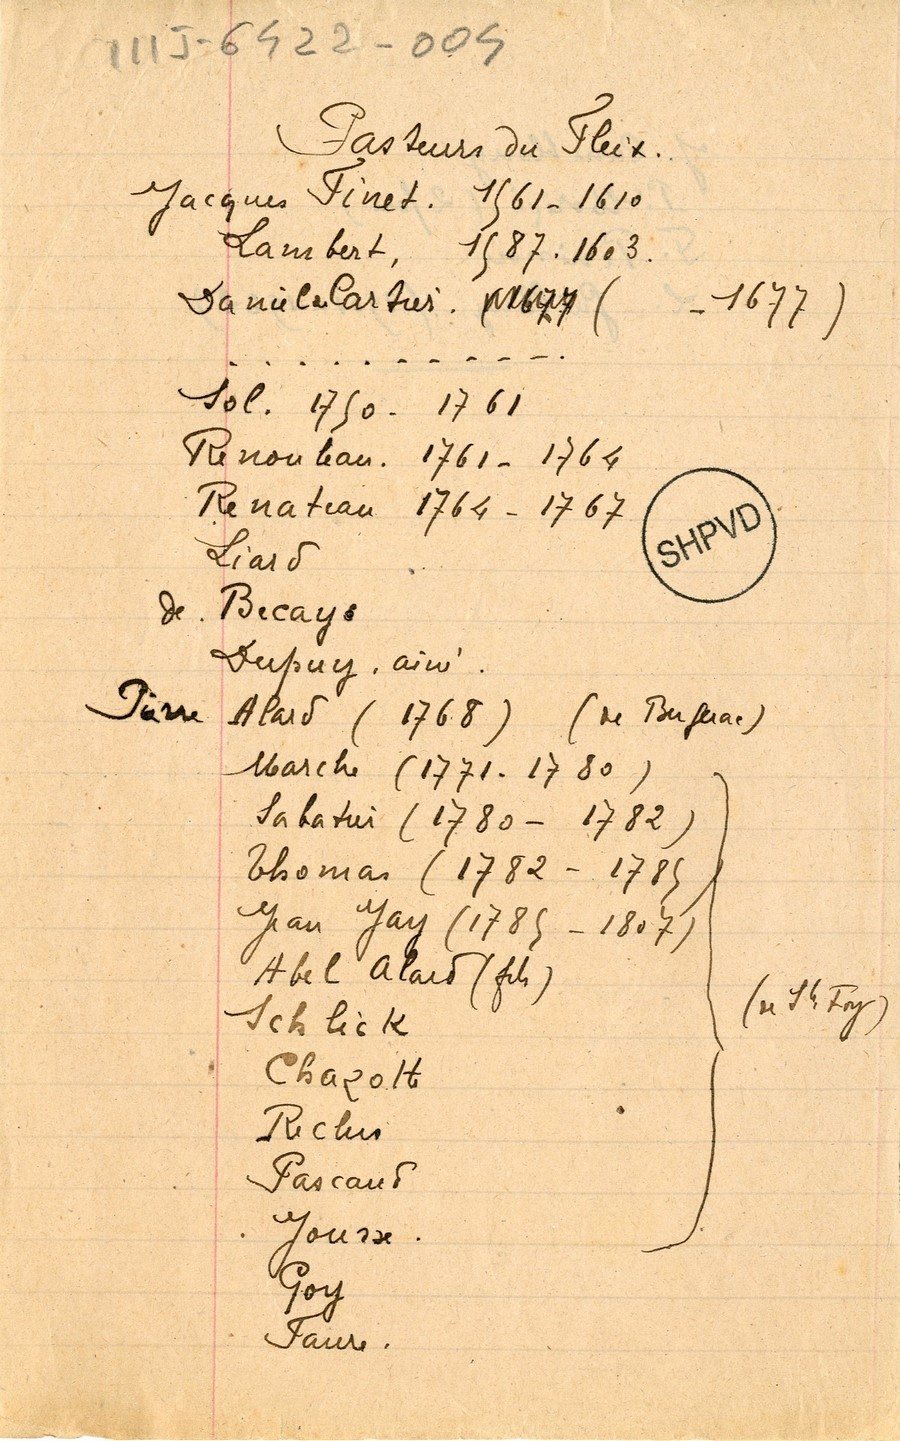 IIIJ-6422-004
Pasteurs du Fleix.
Jacques Finet. 1561-1610
Lambert, 1587.1603.
Daniel Cartier. ( -1677)
. . . . . . - - - - - .
Sol. 1750- 1761
Renouleau. 1761- 1764
Renateau 1764 - 1767
SHPVD
Liard
de. Becays
Dupuy, ainé.
Pierre Alard (1768) (de Bergerac)
Marche (1771. 1780)
Sabatier (1780- 1782)
Thomas (1782 - 1785)
Jean Jay (1785 -1807)
Abel Alard (fils)
(de Ste Foy)
Schlick
Chazott
Reclus
Pascaud
Jousse.
Goy
Faure.